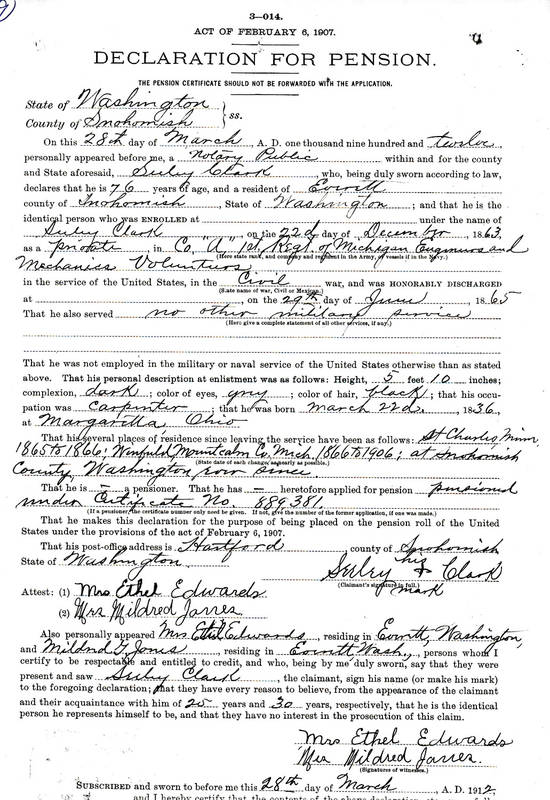 3—014.
ACT OF FEBRUARY 6, 1907.
DECLARATION FOR PENSION.
THE PENSION CERTIFICATE SHOULD NOT BE FORWARDED WITH THE APPLICATION.
State of Washington
County of Snohomish } ss.
On this 28th day of March, A. D. one thousand nine hundred and twelve
personally appeared before me, a Notary Public within and for the county
and State aforesaid, Seeley Clark who, being duly sworn according to law,
declares that he is 76 years of age, and a resident of Everett
county of Snohomish, State of Washington; and that he is the
identical person who was ENROLLED at under the name of
Seeley Clark, on the 22d day of December, 1863,
as a private, in Co. "A", 1st Regt. of Michigan Engineers and
(Here state rank, and company and regiment in the Army, or vessels if in the Navy.)
Mechanics Volunteers
in the service of the United States, in the Civil war, and was HONORABLY DISCHARGED
(State name of war, Civil or Mexican.)
at , on the 29th day of June, 1865
That he also served no other military service
(Here give a complete statement of all other services, if any.)
That he was not employed in the military or naval service of the United States otherwise than as stated
above. That his personal description at enlistment was as follows: Height, 5 feet 10 inches;
complexion, dark; color of eyes, grey; color of hair, black; that his occu-
pation was carpenter; that he was born March 22d, 1836,
at Margaritta, Ohio
That his several places of residence since leaving the service have been as follows: St Charles, Minn,
1865 to 1866; Winfield, Mountcalm Co, Mich, 1866 to 1906; at Snohomish
(State date of each change, as nearly as possible.)
County, Washington, ever since
That he is — a pensioner. That he has — heretofore applied for pension pensioned
under Certificate No. 889,381.
(If a pensioner, the certificate number only need be given. If not, give the number of the former application, if one was made.)
That he makes this declaration for the purpose of being placed on the pension roll of the United
States under the provisions of the act of February 6, 1907.
That his post-office address is Hartford county of Snohomish
State of Washington.
Seeley his Clark
(Claimant's signature in full.)
mark
Attest: (1) Mrs Ethel Edwards
(2) Mrs Mildred
Also personally appeared Mrs. Ethel Edwards, residing in Everett, Washington,
and Mildred residing in Everett Wash, persons whom I
certify to be respectable and entitled to credit, and who, being by me duly sworn, say that they were
present and saw Seeley Clark, the claimant, sign his name (or make his mark)
to the foregoing declaration; that they have every reason to believe, from the appearance of the claimant
and their acquaintance with him of 20 years and 30 years, respectively, that he is the identical
person he represents himself to be, and that they have no interest in the prosecution of this claim.
Mrs Ethel Edwards
Mrs Mildred
(Signatures of witnesses.)
SUBSCRIBED and sworn to before me this 28th day of March, A. D. 1912,
and I hereby certify that the contents of the above declaration